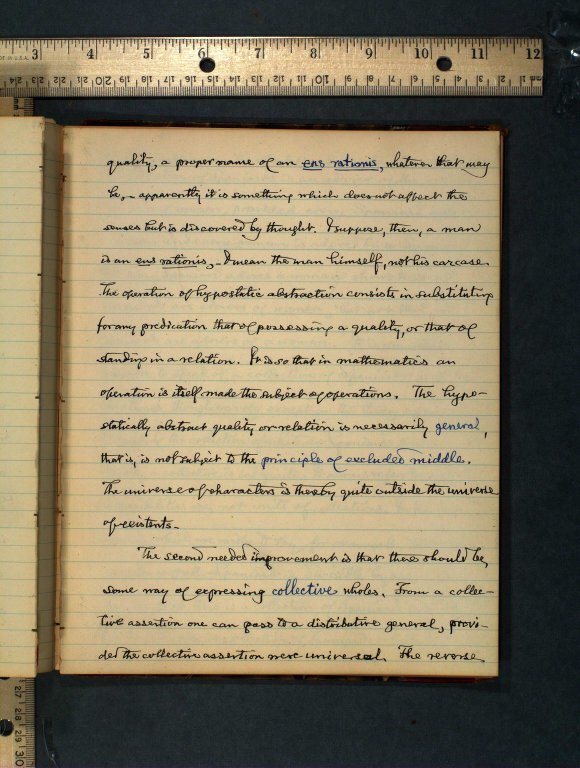 3 4 5 6 7 8 9 10 11 12
quality, a proper name of an ens rationis, whatever that may
be, – apparently it is something which does not affect the
senses but is discovered by thought. I suppose, then, a man
is an ens rationis, – I mean the man himself, not his carcase.
The operation of hypostatic abstraction consists in substituting
for any predication that of possessing a quality, or that of
standing in a relation. It is so that in mathematics an
operation is itself made the subject of operations. The hypo-
statically abstract quality or relation is necessarily general,
that is, is not subject to the principle of excluded middle.
The universe of characters is thereby quite outside the universe
of existents.
The second needed improvement is that there should be
some way of expressing collective wholes. From a collec-
tive assertion one can pass to a distributive general, provi-
ded the collective assertion were universal. The reverse